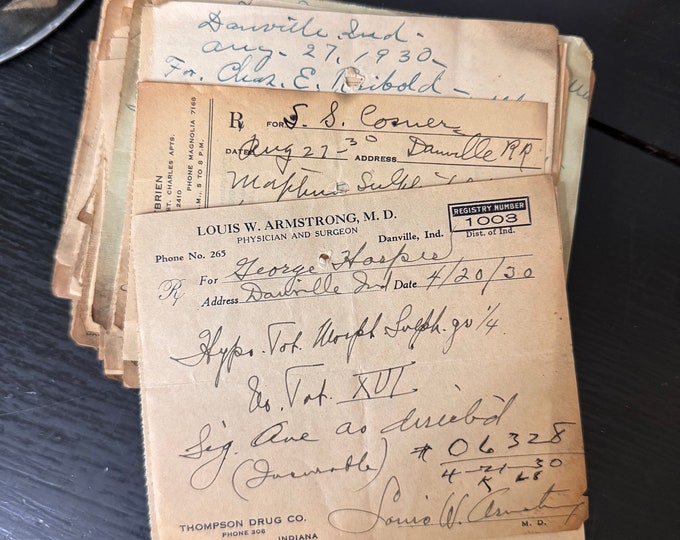 Danville Ind-
Aug- 27, 1930-
For Chas. E.
BRIEN
ST. CHARLES APTS.
2410
PHONE MAGNOLIA 7160
M., 5 TO 8 P.M.
Rx FOR S. S. Cosner
DATE Aug 27-30 ADDRESS Danville RR
LOUIS W. ARMSTRONG, M. D.
PHYSICIAN AND SURGEON
Phone No. 265
Danville, Ind.
REGISTRY NUMBER
1003
Dist. of Ind.
Rx For George
Address Danville Ind Date 4/20/30
Hypo. Tat. Morph Sulph. gr 1/4
No. Tat. XVI
Sig. One as directed
(Incurable)
# 06328
4-21-30
Louis W. Armstrong
M. D.
THOMPSON DRUG CO.
PHONE 308
INDIANA